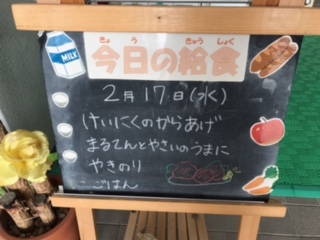 MILK
きょう きゅうしょく
今日の給食
2月17日(水)
けいにくのからあげ
まるてんとやさいのうまに
やきのり
ごはん